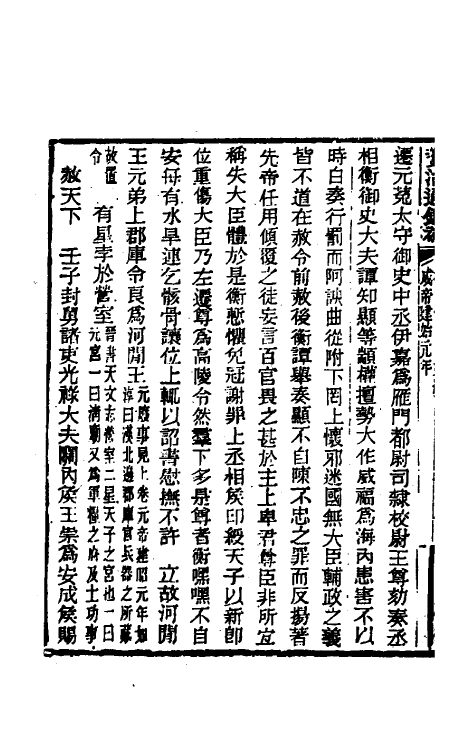 成帝建始元年
遷元菟太守御史中丞伊嘉爲雁門都尉司隷校尉王尊劾奏丞
相衡御史大夫譚知顯等顓權擅勢大作威福爲海內患害不以
時白奏行罰而阿諛曲從附下罔上懷邪迷國無大臣輔政之義
皆不道在赦令前赦後衡譚舉奏顯不自陳不忠之罪而反揚著
先帝任用傾覆之徒妄言百官畏之甚於主上卑君尊臣非所宜
稱失大臣體於是衡慙懼免冠謝罪上丞相侯印綬天子以新卽
位重傷大臣乃左遷尊爲高陵令然羣下多是尊者衡嘿嘿不自
安每有水旱連乞骸骨讓位上輒以詔書慰撫不許 立故河閒
王元弟上郡庫令良爲河閒王元廢事見上卷元帝建昭元年如淳曰漢北邊郡庫官兵器之所藏
故置令 有星孛於營室晉書天文志營室二星天子之宮也一曰元宮一曰淸廟又爲軍糧之府及土功事
赦天下 壬子封舅諸吏光祿大夫關內侯王崇爲安成侯賜